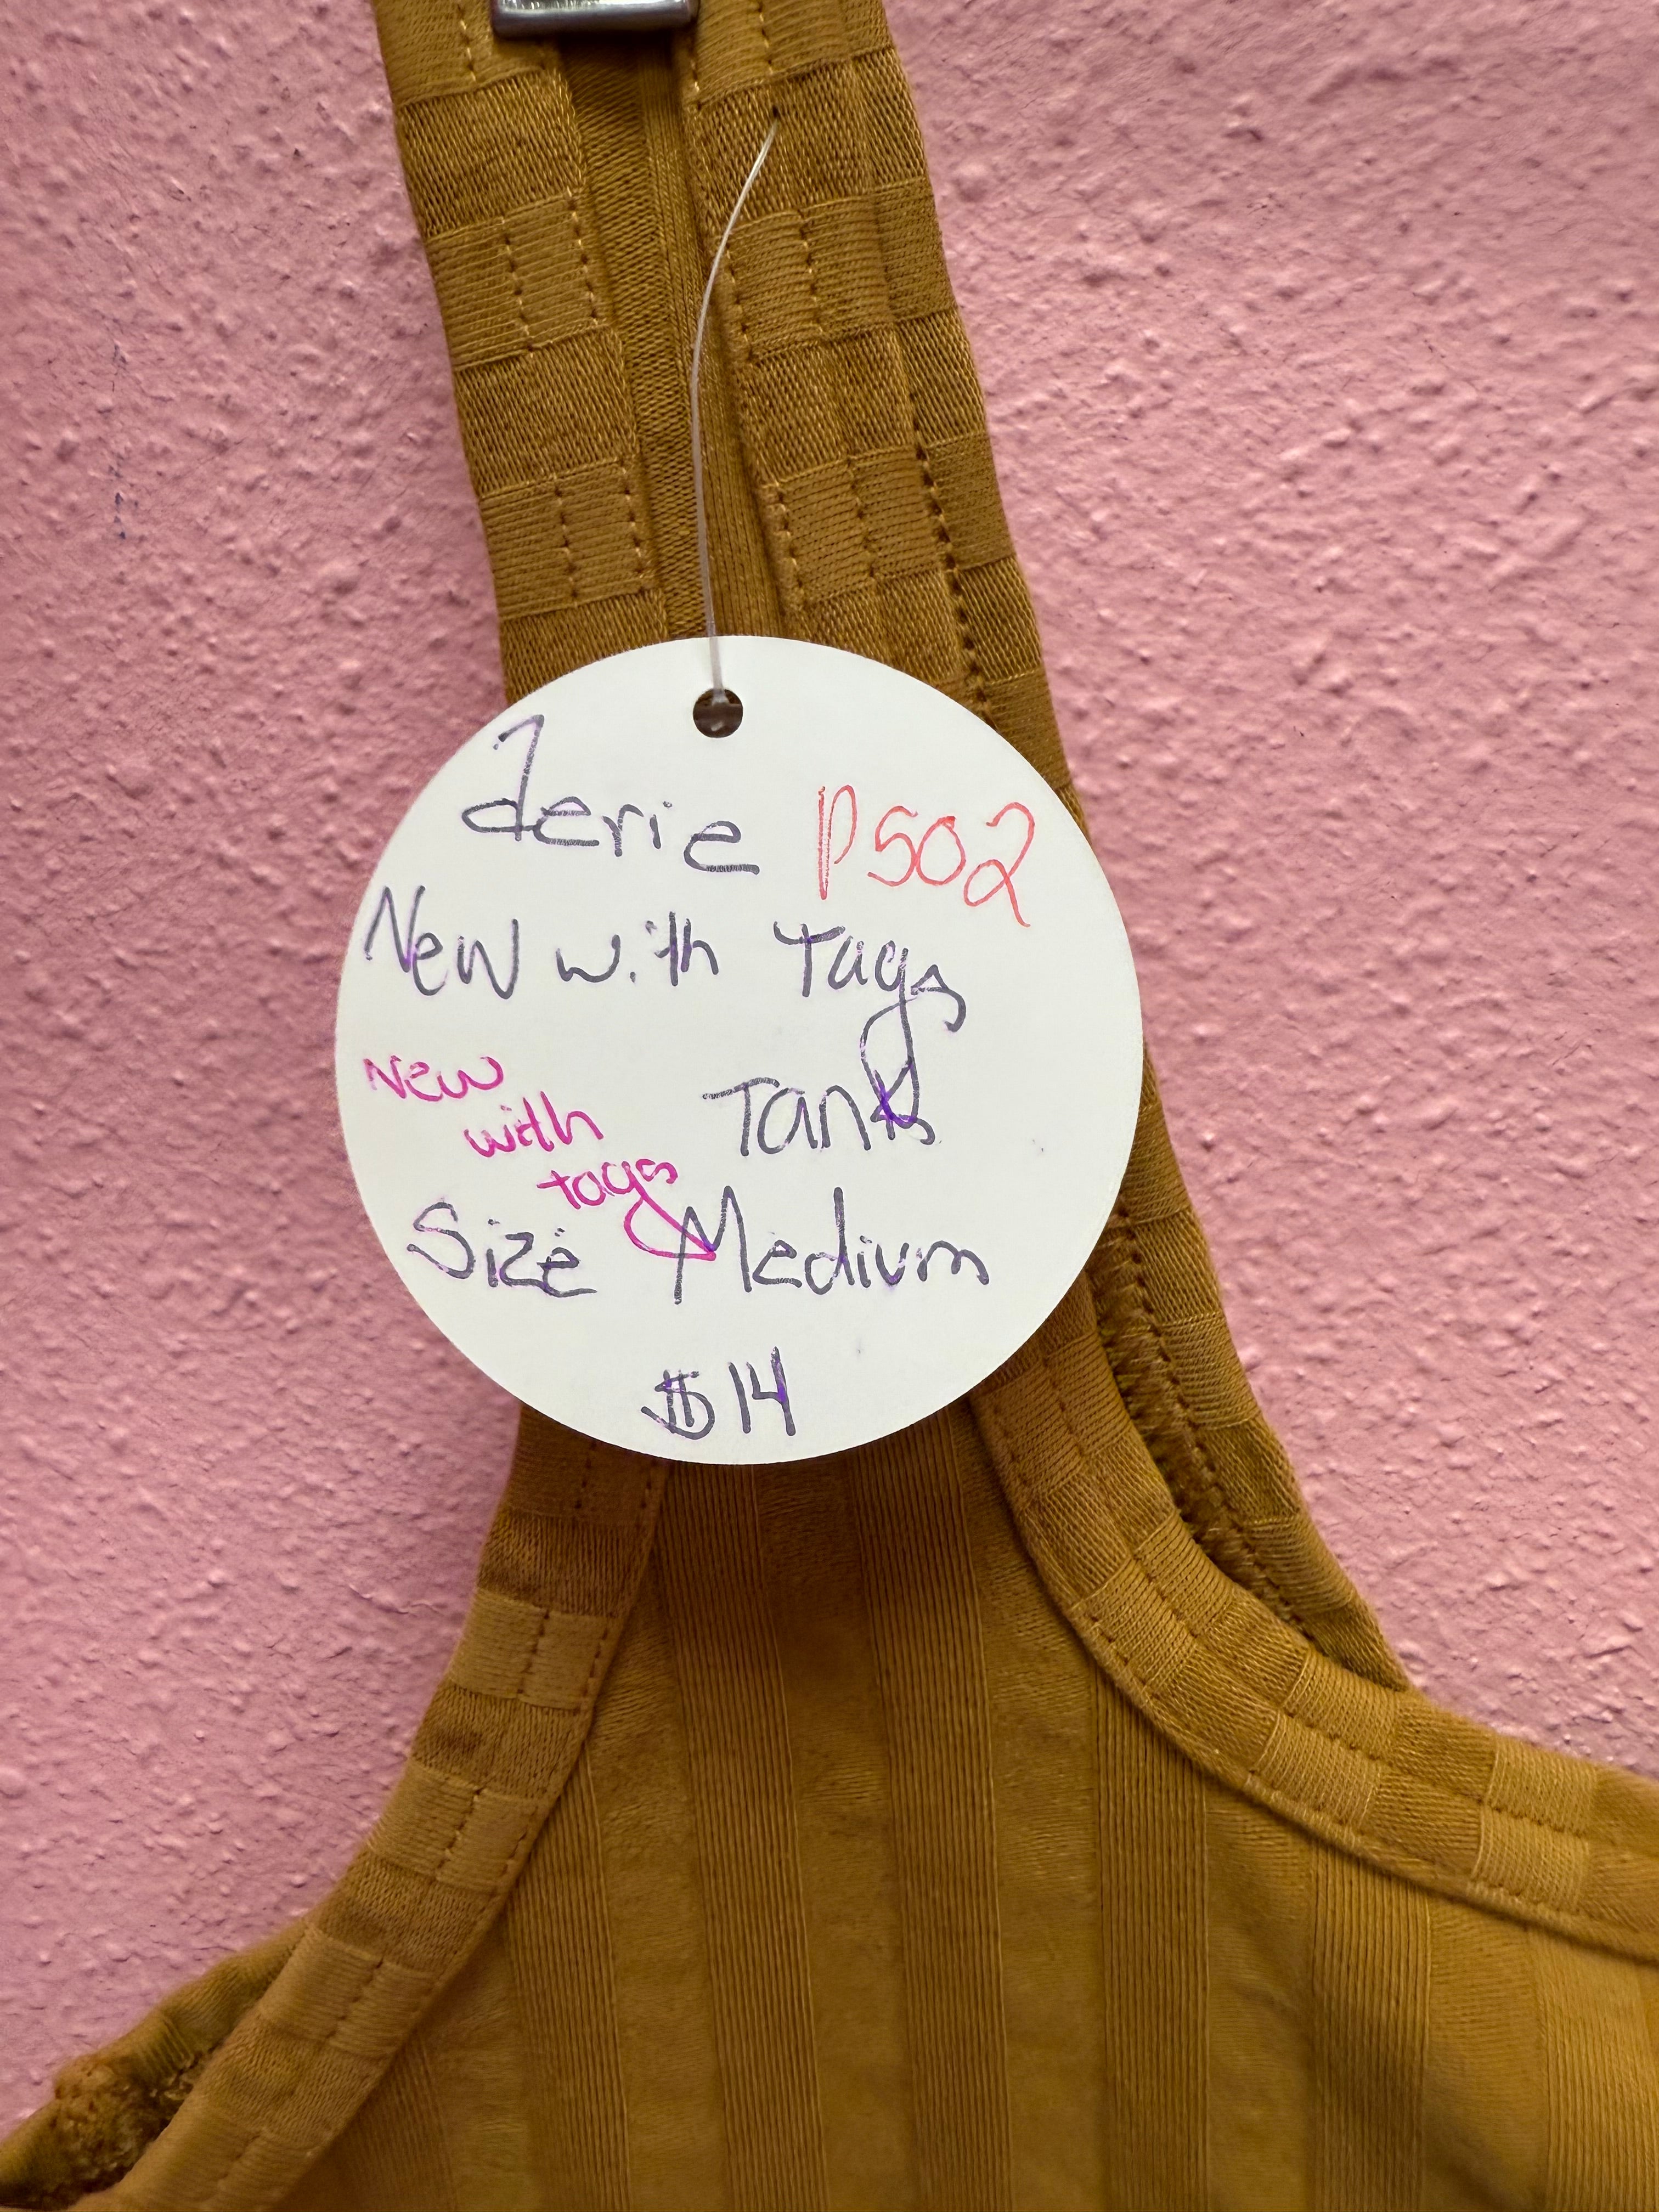 Aerie P502
New with Tags
New
with
tags
Tank
Size Medium
$14